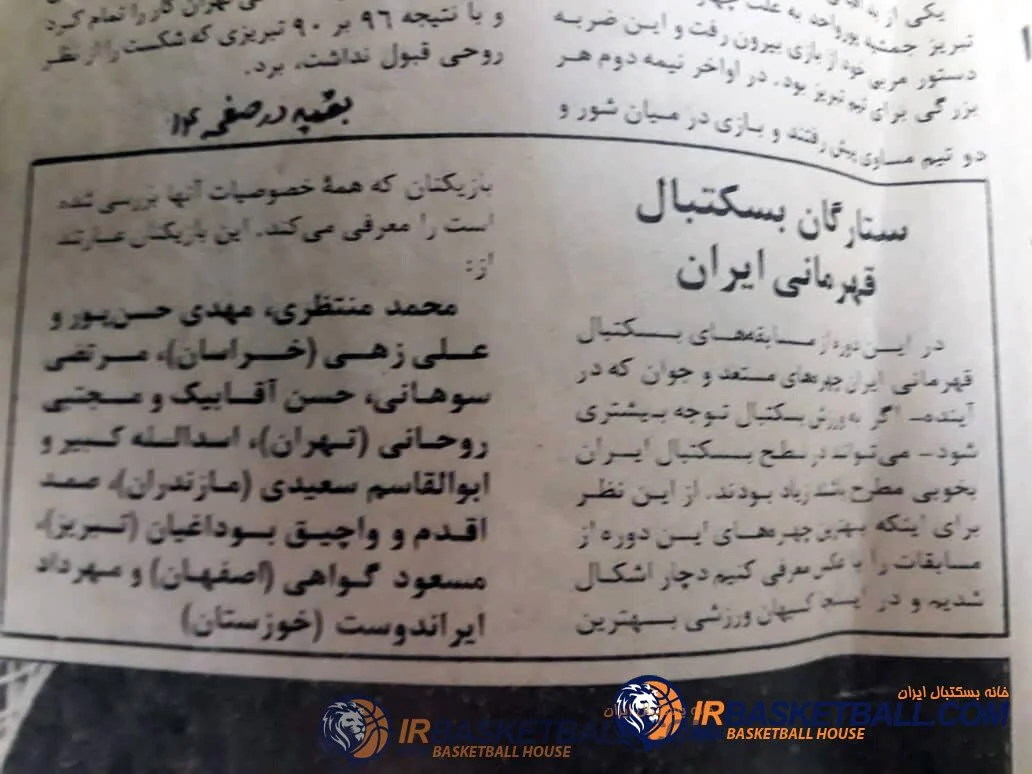 یکی از
تبریز جمشید پورواحد به علت چهار
دستور مربی خود از بازی بیرون رفت و این ضربه
بزرگی برای تیم تبریز بود. در اواخر نیمه دوم هر
دو تیم مساوی پیش رفتند و بازی در میان شور و
تهران کار را تمام کرد
و با نتیجه ۹۶ بر ۹۰ تبریزی که شکست را از نظر
روحی قبول نداشت، برد.
بقیه در صفحه ۱۴
ستارگان بسکتبال
قهرمانی ایران
در ایـن دوره از مسابقه‌هـای بـسکتبال
قهرمانی ایران چهره‌های مستعد و جوان که در
آینده – اگر به ورزش بسکتبال توجه بـیشتری
شود – می‌توانند در سطح بـسکتبال ایـران
بخوبی مطرح باشند زیاد بـودند. از ایـن نظر
برای اینکه بهترین چهره‌هـای ایـن دوره از
مسابقات را با عکس معرفی کنیم دچار اشکال
شدیم و در اینجا کیهان ورزشی بـهترین
بازیکنان که همهٔ خصوصیات آنها بررسی شده
است را معرفی می‌کند. این بازیکنان عبارتند
از:
محمد منتظری، مهدی حسن‌پور و
علـی زهـی (خـراسان)، مـرتضی
سوهانی، حسن آقـابیک و مـجتبی
روحـانی (تـهران)، اسدالـله کـبیر و
ابوالقاسم سعیدی (مازندران)، صمد
اقدم و واچیق بـوداغیان (تـبریز)،
مسعود گـواهی (اصفهان) و مـهرداد
ایراندوست (خوزستان)
خانه بسکتبال ایران
IRBASKETBALL.COM
BASKETBALL HOUSE
IRBASKETBALL
BASKETBALL HOUSE